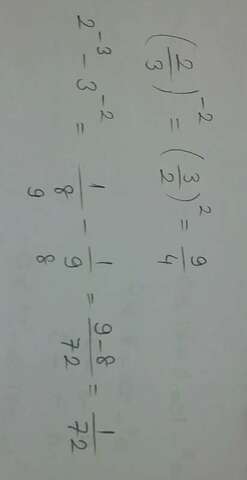 (2/3)^-2 = (3/2)^2 = 9/4
2^-3 - 3^-2 = 1/8 - 1/9 = 9-8/72 = 1/72
9 8